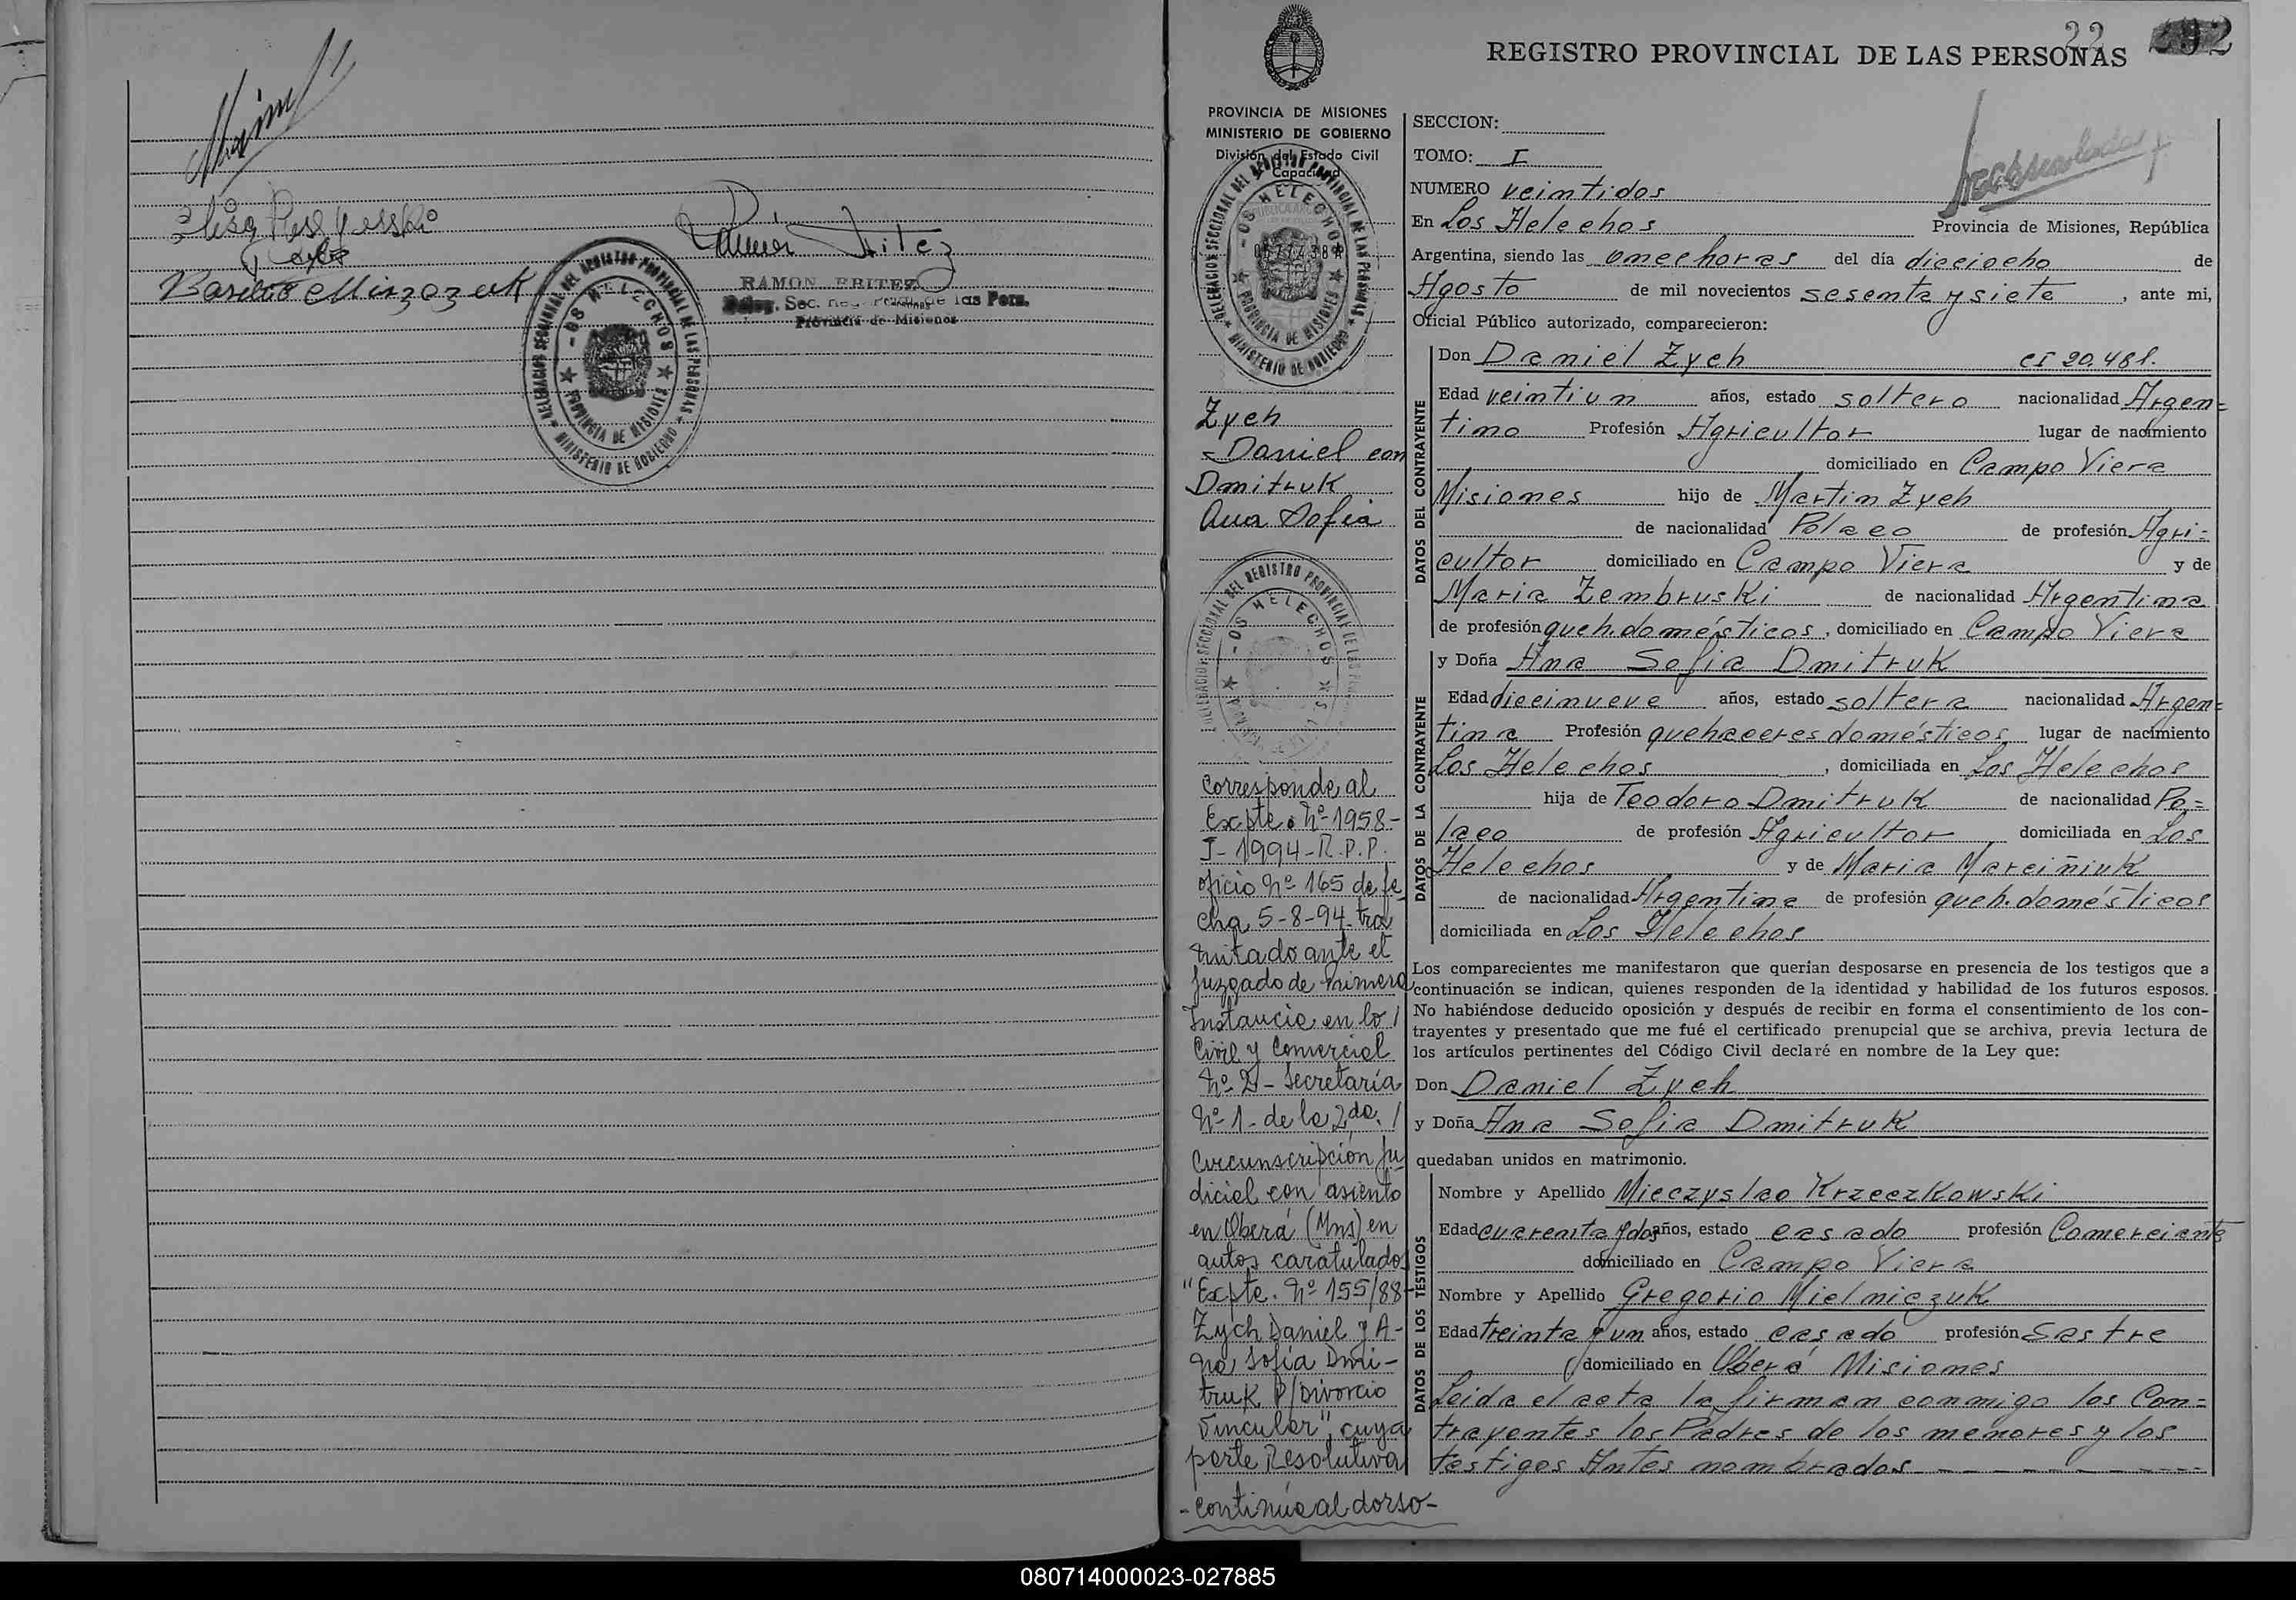 Basilio Minzazuk
RAMON BRITEZ
Sec. de las Pers.
Provincia de Misiones
DELEGACION SECCIONAL DEL REGISTRO PROVINCIAL DE LAS PERSONAS
LOS HELECHOS
PROVINCIA DE MISIONES
MINISTERIO DE GOBIERNO
22 192
REGISTRO PROVINCIAL DE LAS PERSONAS
PROVINCIA DE MISIONES
MINISTERIO DE GOBIERNO
División del Estado Civil
Capacidad
DELEGACION SECCIONAL DEL REGISTRO PROVINCIAL DE LAS PERSONAS
LOS HELECHOS
PROVINCIA DE MISIONES
MINISTERIO DE GOBIERNO
Zych
- Daniel con
Dmitruk
Ana Sofia
DELEGACION SECCIONAL DEL REGISTRO PROVINCIAL DE LAS
LOS HELECHOS
Corresponde al
Expte. Nº 1958-
J-1994-R.P.P.
oficio Nº 165 de fe
cha 5-8-94 tra
mitado ante el
Juzgado de Primera
Instancia en lo /
Civil y Comercial
Nº 2 - Secretaría
Nº 1 - de la 2da. /
Circunscripción Ju
dicial con asiento
en Oberá (Mns) en
autos caratulados
"Expte. Nº 155/88-
Zych Daniel y A-
na Sofía Dmi-
truk P/Divorcio
Vincular", cuya
parte Resolutiva
- continúa al dorso -
SECCION:
TOMO: I
NUMERO veintidos
En Los Helechos Provincia de Misiones, República
Argentina, siendo las once horas del día dieciocho de
Agosto de mil novecientos sesenta y siete, ante mi,
Oficial Público autorizado, comparecieron:
DATOS DEL CONTRAYENTE
Don Daniel Zych CI 20.481.
Edad veintiun años, estado soltero nacionalidad Argen=
tino Profesión Agricultor lugar de nacimiento
domiciliado en Campo Viera
Misiones hijo de Martin Zych
de nacionalidad Polaco de profesión Agri=
cultor domiciliado en Campo Viera y de
Maria Zembruski de nacionalidad Argentina
de profesión queh. domésticos, domiciliado en Campo Viera
DATOS DE LA CONTRAYENTE
y Doña Ana Sofia Dmitruk
Edad diecinueve años, estado soltera nacionalidad Argen=
tina Profesión quehaceres domésticos lugar de nacimiento
Los Helechos, domiciliada en Los Helechos
hija de Teodoro Dmitruk de nacionalidad Po=
laco de profesión Agricultor domiciliada en Los
Helechos y de Maria Marciñiuk
de nacionalidad Argentina de profesión queh. domésticos
domiciliada en Los Helechos
Los comparecientes me manifestaron que querían desposarse en presencia de los testigos que a
continuación se indican, quienes responden de la identidad y habilidad de los futuros esposos.
No habiéndose deducido oposición y después de recibir en forma el consentimiento de los con-
trayentes y presentado que me fué el certificado prenupcial que se archiva, previa lectura de
los artículos pertinentes del Código Civil declaré en nombre de la Ley que:
Don Daniel Zych
y Doña Ana Sofia Dmitruk
quedaban unidos en matrimonio.
DATOS DE LOS TESTIGOS
Nombre y Apellido Mieczyslao Krzeczkowski
Edad cuarenta y dos años, estado casado profesión Comerciante
domiciliado en Campo Viera
Nombre y Apellido Gregorio Mielniczuk
Edad treinta y un años, estado casado profesión Sastre
domiciliado en Oberá Misiones
Leida el acta la firman conmigo los Con=
trayentes los Padres de los menores y los
testigos Antes nombrados
080714000023-027885